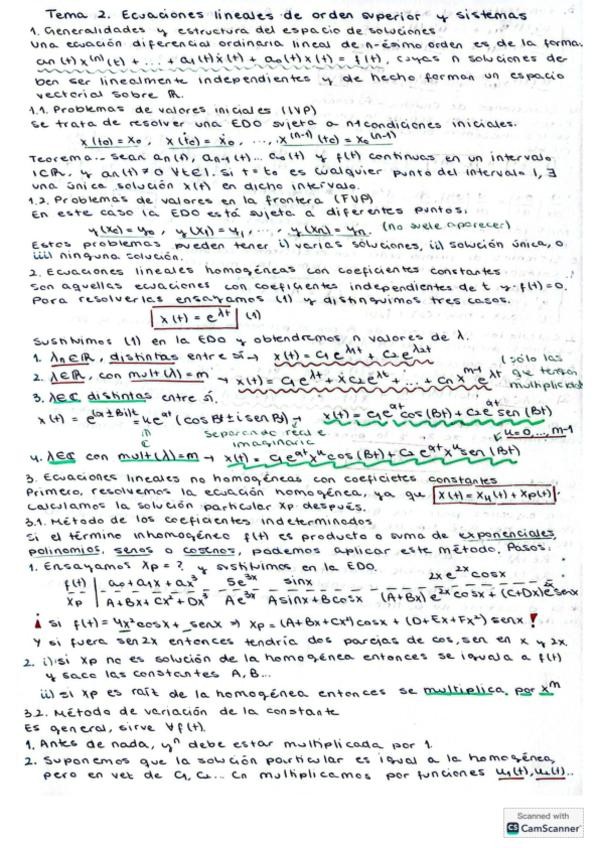 Tema 2. Ecuaciones lineales de orden superior y sistemas
1. Generalidades y estructura del espacio de soluciones
Una ecuación diferencial ordinaria lineal de n-ésimo orden es de la forma.
an(t)x⁽ⁿ⁾(t) + ... + a1(t)ẋ(t) + a0(t)x(t) = f(t), cuyas n soluciones de-
ben ser linealmente independientes y de hecho forman un espacio
vectorial sobre ℝ.
1.1. Problemas de valores iniciales (IVP)
Se trata de resolver una EDO sujeta a n-1 condiciones iniciales.
x(t0) = x0, ẋ(t0) = ẋ0, ..., x⁽ⁿ⁻¹⁾(t0) = x0⁽ⁿ⁻¹⁾
Teorema.- Sean an(t), an-1(t)... a0(t) y f(t) continuas en un intervalo
I⊂ℝ, y an(t) ≠ 0 ∀t∈I. Si t = t0 es cualquier punto del intervalo I, ∃
una única solución x(t) en dicho intervalo.
1.2. Problemas de valores en la frontera (FVP)
En este caso la EDO está sujeta a diferentes puntos:
y(x0) = y0, y(x1) = y1, ..., y(xn) = yn. (no suele aparecer)
Estos problemas pueden tener i) varias soluciones, ii) solución única, o
iii) ninguna solución.
2. Ecuaciones lineales homogéneas con coeficientes constantes
Son aquellas ecuaciones con coeficientes independientes de t y f(t)=0.
Para resolverlas ensayamos (1) y distinguimos tres casos.
x(t) = e^λt (1)
Sustituimos (1) en la EDO y obtendremos n valores de λ.
1. λn∈ℝ, distintas entre sí → x(t) = C1e^λ1t + C2e^λ2t
2. λ∈ℝ, con mult(λ)=m → x(t) = C1e^λt + xC2e^λt + ... + Cn x^m-1 e^λt (sólo las que tengan multiplicidad)
3. λ∈ℂ distintas entre sí.
x(t) = e^(a±Bi)t = ue^at (cos Bt ± i sen Bt) → x(t) = C1e^at cos(Bt) + C2e^at sen(Bt)
Separando real e imaginaria
u=0,...,m-1
4. λ∈ℂ con mult(λ)=m → x(t) = C1e^at x^u cos(Bt) + C2 e^at x^u sen(Bt)
3. Ecuaciones lineales no homogéneas con coeficietes constantes
Primero, resolvemos la ecuación homogénea, ya que x(t) = xH(t) + xp(t).
Calculamos la solución particular xp después.
3.1. Método de los coeficientes indeterminados
Si el término inhomogéneo f(t) es producto o suma de exponenciales,
polinomios, senos o cosenos, podemos aplicar este método. Pasos:
1. Ensayamos xp = ? y sustituimos en la EDO.
f(t) | a0 + a1x + ax³ 5e^3x sinx 2xe^2x cosx
xp | A+Bx+Cx²+Dx³ Ae^3x Asinx+Bcosx (A+Bx)e^2x cosx + (C+Dx)e^2x senx
¡ si f(t) = 4x²cosx + senx ⇒ xp = (A+Bx+Cx²)cosx + (D+Ex+Fx²) senx !
Y si fuera sen2x entonces tendría dos parejas de cos, sen en x y 2x.
2. i) si xp no es solución de la homogénea entonces se iguala a f(t)
y saco las constantes A, B...
ii) si xp es raíz de la homogénea entonces se multiplica por x^m
3.2. Método de variación de la constante
Es general, sirve ∀f(t).
1. Antes de nada, yⁿ debe estar multiplicada por 1.
2. Suponemos que la solución particular es igual a la homogénea,
pero en vez de C1, C2... Cn multiplicamos por funciones u1(t), u2(t)...
Scanned with
CS CamScanner